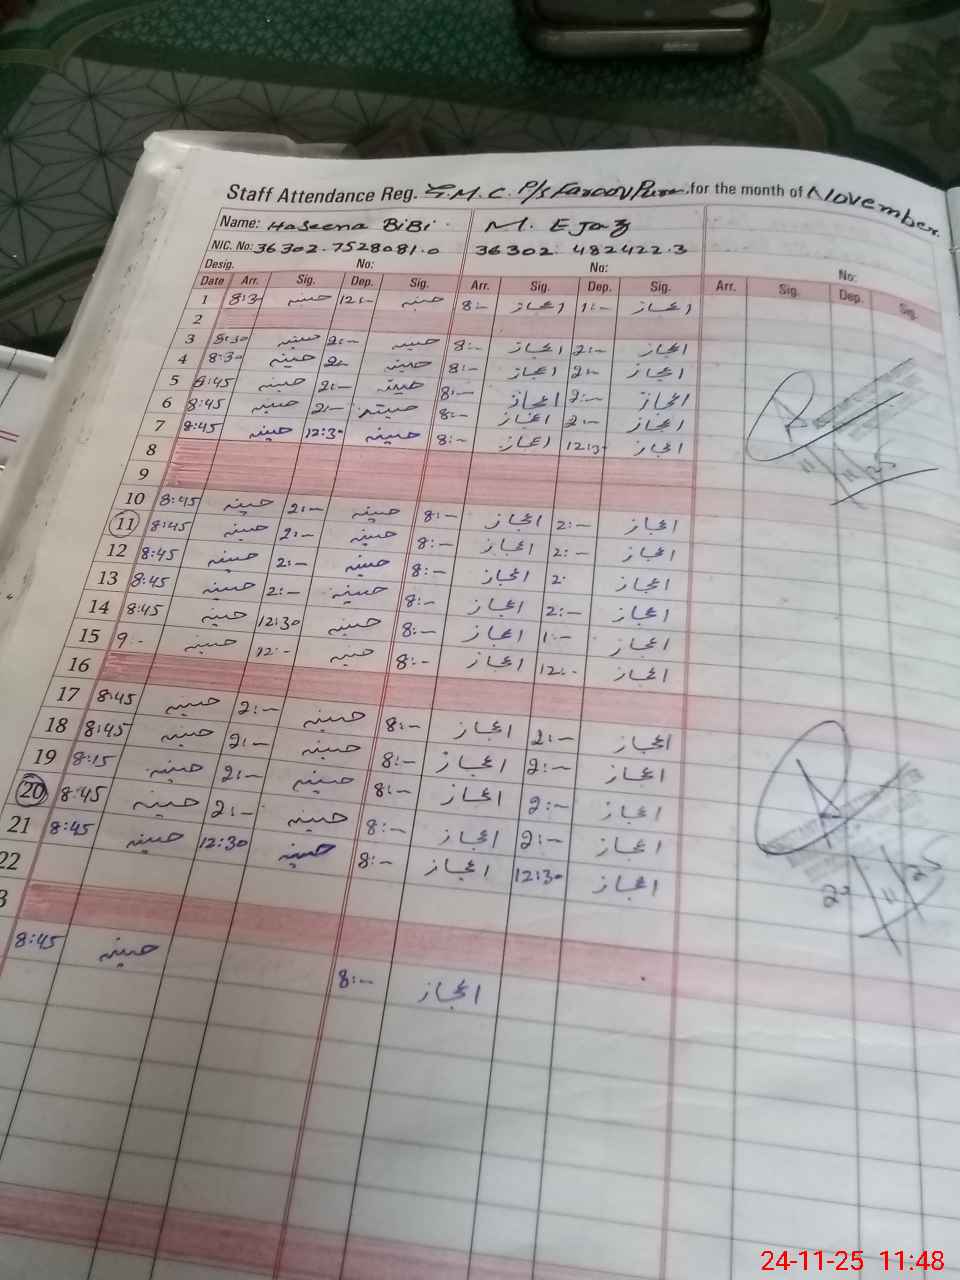 Staff Attendance Reg. G.M.C. P/S for the month of November.
Name: Haseena BiBi. M. EJaz
NIC. No: 36302.7528081.0 36302. 482422.3
Desig. No: No: No:
Date Arr. Sig. Dep. Sig. Arr. Sig. Dep. Sig. Arr. Sig. Dep. Sig.
1 8:3 حسینہ 12:- حسینہ 8:- اعجاز 1:- اعجاز
2
3 8:30 حسینہ 2:- حسینہ 8:- اعجاز 2:- اعجاز
4 8:30 حسینہ 2:- حسینہ 8:- اعجاز 2:- اعجاز
5 8:45 حسینہ 2:- حسینہ 8:- اعجاز 2:- اعجاز
6 8:45 حسینہ 2:- حسینہ 8:- اعجاز 2:- اعجاز
7 8:45 حسینہ 12:30 حسینہ 8:- اعجاز 12:3- اعجاز
8
9
10 8:45 حسینہ 2:- حسینہ 8:- اعجاز 2:- اعجاز
11 8:45 حسینہ 2:- حسینہ 8:- اعجاز 2:- اعجاز
12 8:45 حسینہ 2:- حسینہ 8:- اعجاز 2· اعجاز
13 8:45 حسینہ 2:- حسینہ 8:- اعجاز 2:- اعجاز
14 8:45 حسینہ 12:30 حسینہ 8:- اعجاز 1:- اعجاز
15 9:- حسینہ 12:- حسینہ 8:- اعجاز 12:- اعجاز
16
17 8:45 حسینہ 2:- حسینہ 8:- اعجاز 2:- اعجاز
18 8:45 حسینہ 2:- حسینہ 8:- اعجاز 2:- اعجاز
19 8:15 حسینہ 2:- حسینہ 8:- اعجاز 2:- اعجاز
20 8:45 حسینہ 2:- حسینہ 8:- اعجاز 2:- اعجاز
21 8:45 حسینہ 12:30 حسینہ 8:- اعجاز 12:30 اعجاز
22
3
8:45 حسینہ 8:- اعجاز
11/11/25
11/25
24-11-25 11:48